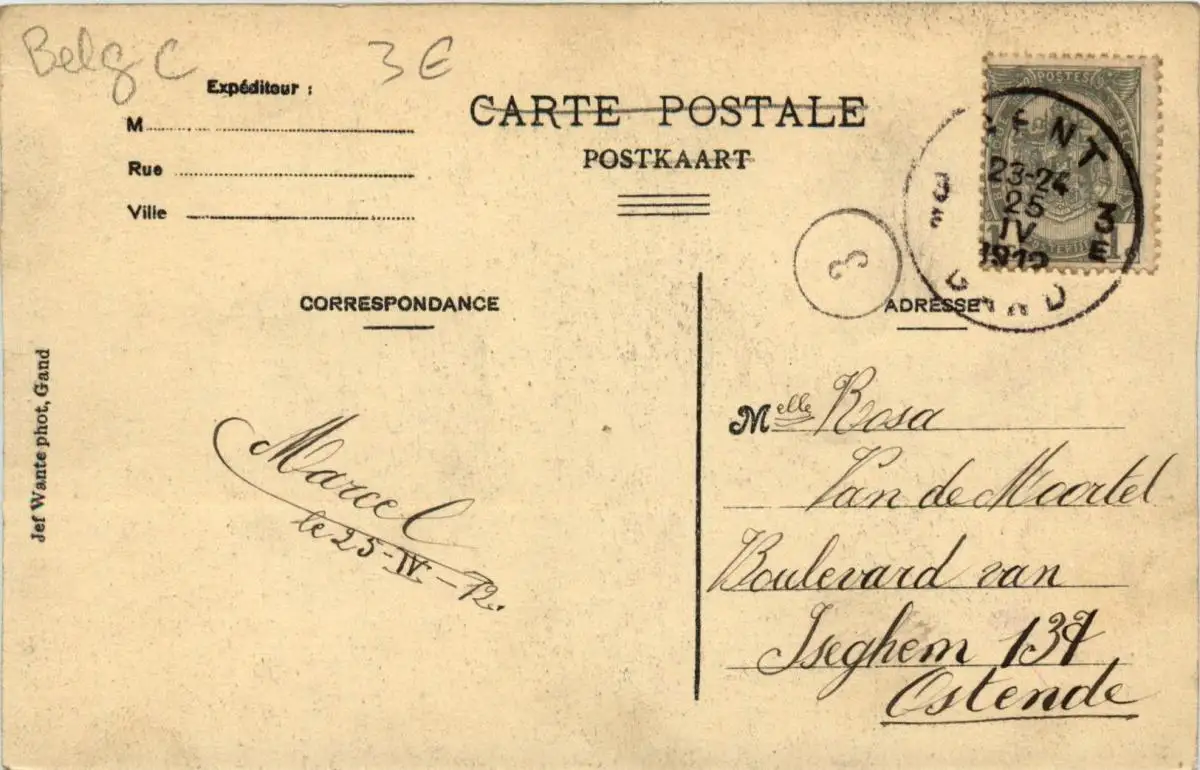 Belg C
3 E
Expéditeur :
M
Rue
Ville
CARTE POSTALE
POSTKAART
POSTES
GENT
23-24
25
IV
1912
3
E
GAND
1
3
CORRESPONDANCE
ADRESSE
Jef Wante phot, Gand
Marcel
le 25-IV-12.
Melle Rosa
Van de Moortel
Boulevard van
Iseghem 137
Ostende